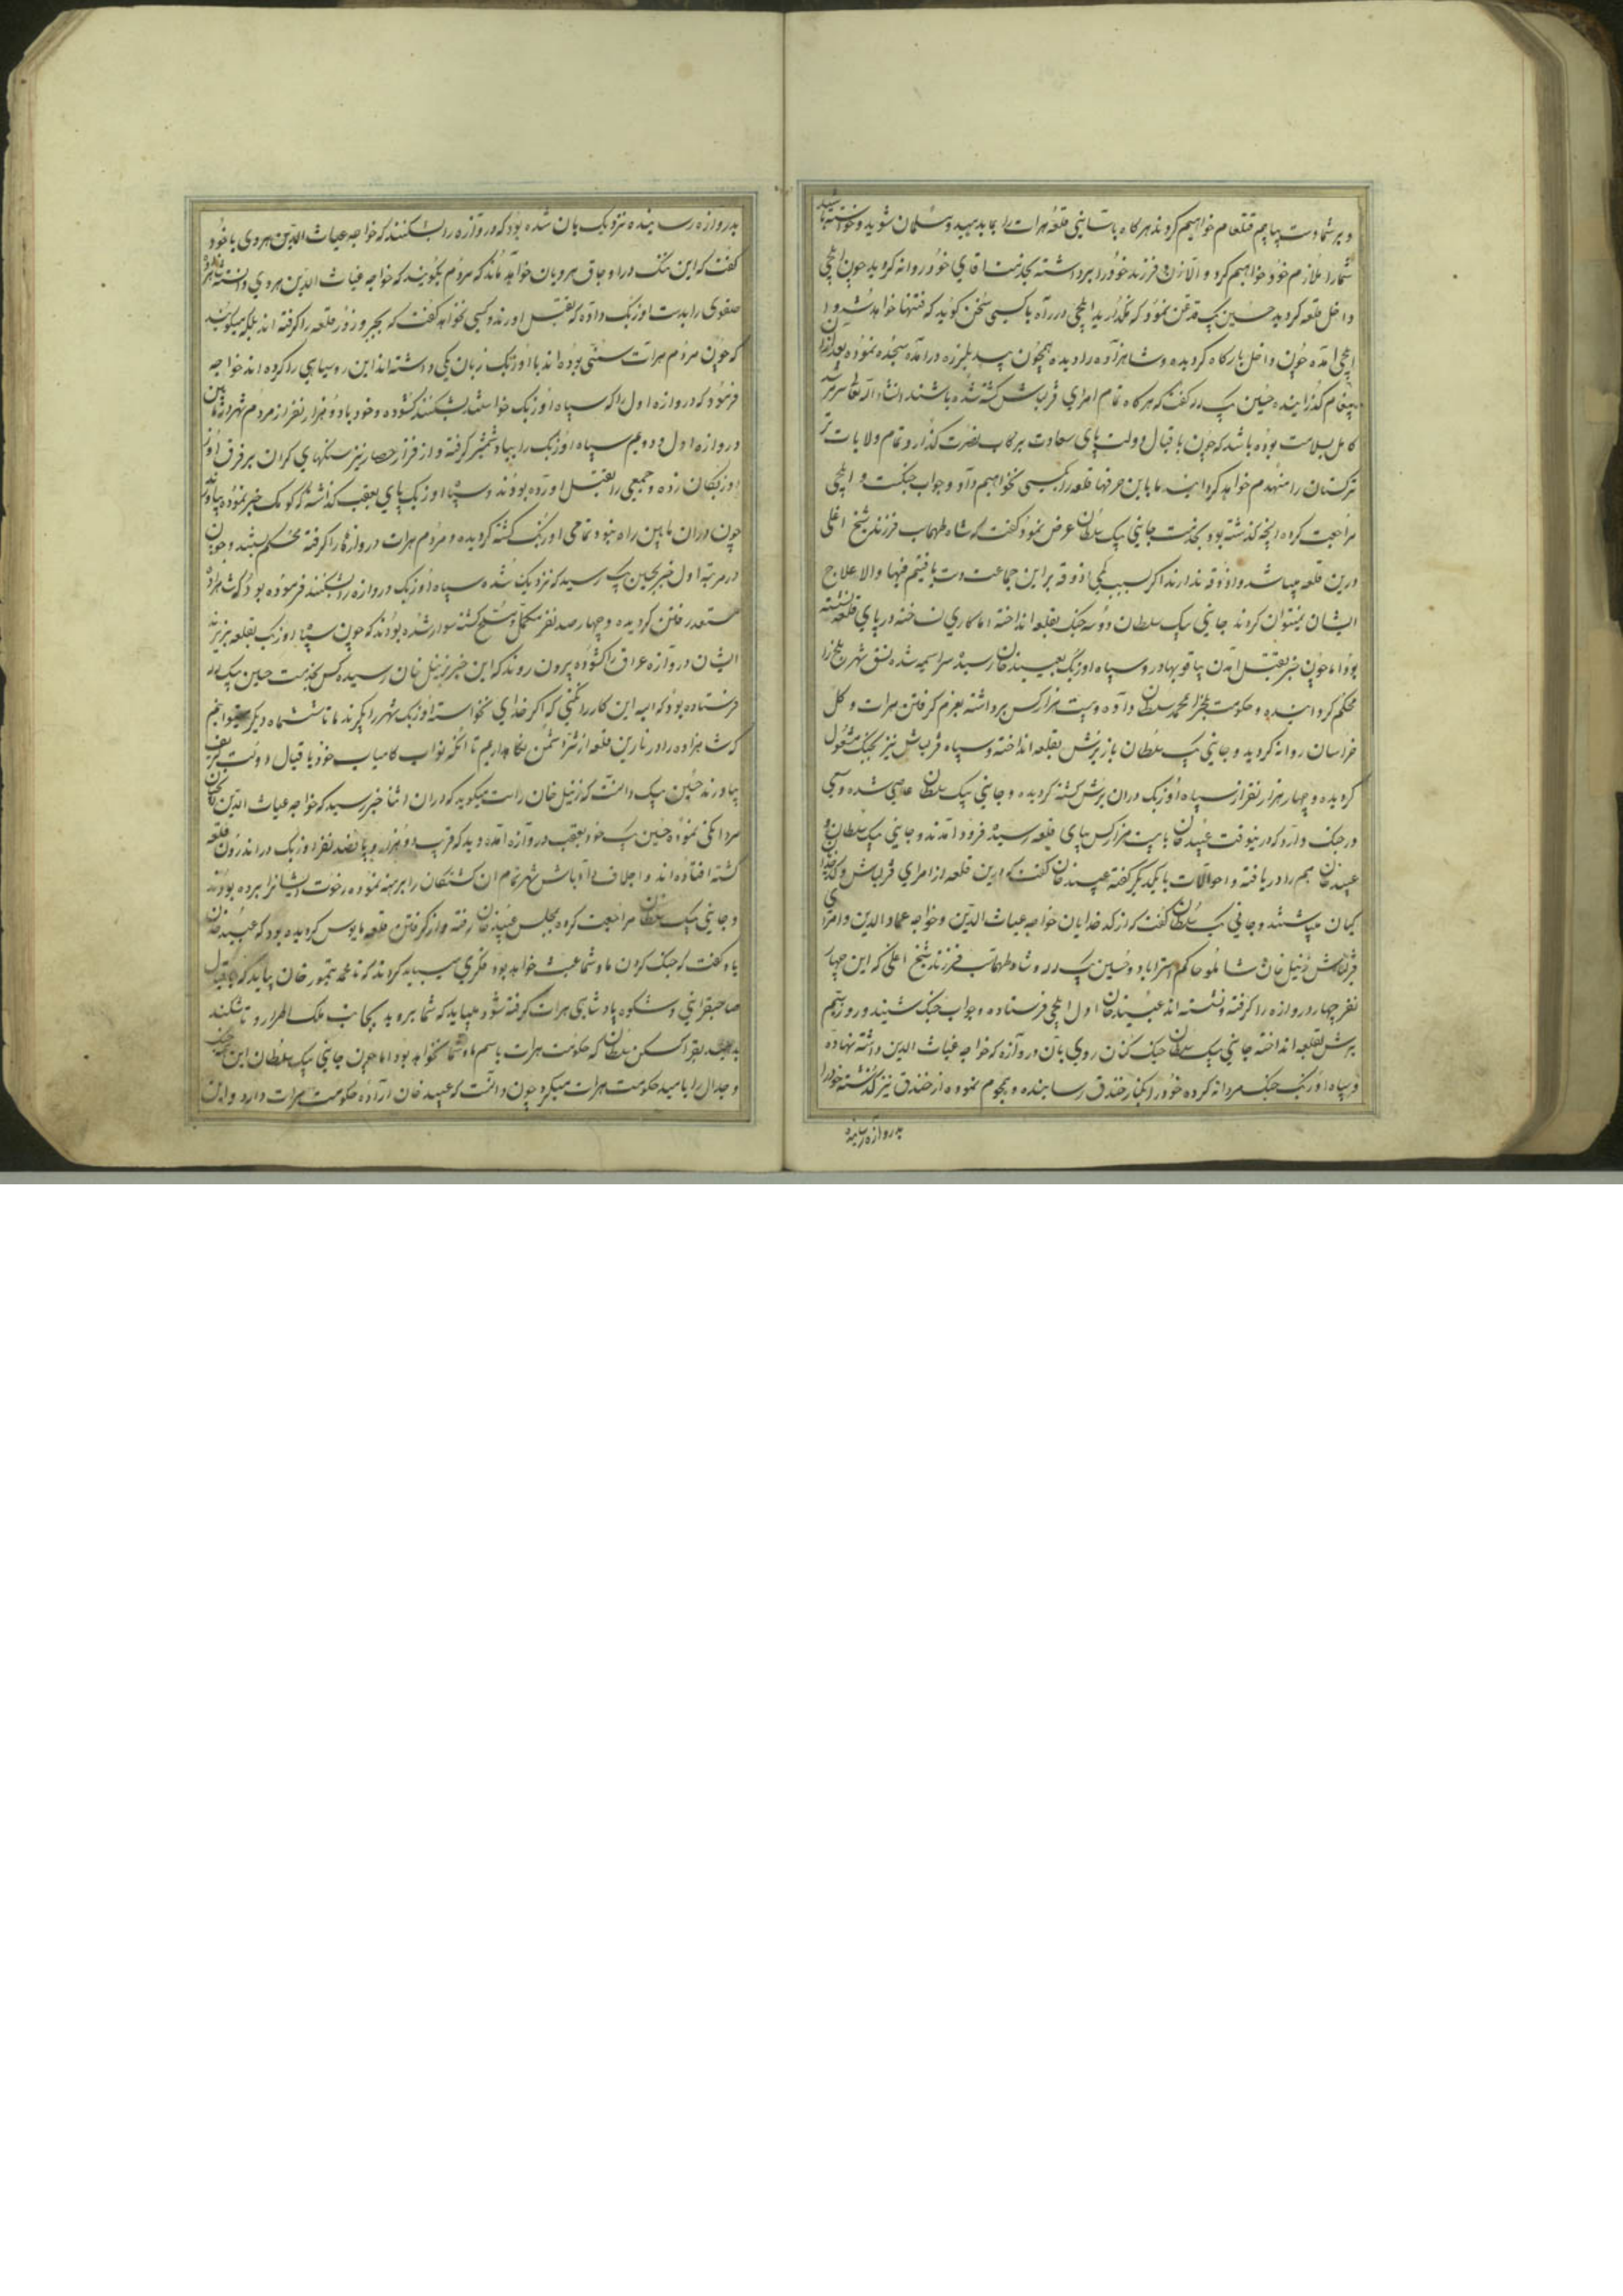 و بر شما دست بیابیم قتل عام خواهیم کرد و ند هرگاه باستاینی قلعه هرات را بما بدهید و مسلمان شوید و خواسته باشید
شما را ملازم خود خواهیم کرد و الا زن و فرزند خود را برداشته بخدمت اقای خود روانه کردید چون ایلچی
داخل قلعه کردید حسین بیک قدغن نمود که نگذارید ایلچی در راه با کسی سخن کوید که فتنها خواهد شد و ان
ایلچی امده چون داخل بارکاه کردیده و شاهزاده را دیده همچون بید بلرزه درامده سجده نموده بعد از ان
پیغام گذرانیده حسین بیک لله کفت که هرکاه تمام امرای قزلباش کشته شده باشند انشاء الله تعالی سر مرشد
کامل بسلامت بوده باشد که چون باقبال و دولت پای سعادت برکاب نصرت گذارد و تمام ولایات تر
ترکستان را منهدم خواهد کردانید ما باین حرفها قلعه را بکسی نخواهیم داد و جواب جنکست و ایلچی
مراجعت کرده انچه گذشته بود بخدمت جانی بیک سلطان عرض نمود و گفت که شاه طهماسب فرزند شیخ اغلی
درین قلعه میباشد و اذوقه ندارند اکر بسبب کمی اذوقه براین جماعت دست یافتیم فبها والا علاج
ایشان نمیتوان کرد ند جانی بیک سلطان دو سه جنک بقلعه انداخته اما کاری نساخته در پای قلعه نشسته
بود اما چون خبر بقتل امدن بیاقو بهادر و سپاه اوزبک بعبید خان رسید سراسیمه شده نسق شهر بلخ را
محکم کردانیده و حکومت بلخ را بمحمد سلطان داده و بیست هزار کس برداشته بعزم گرفتن هرات و کل
خراسان روانه کردید و جانی بیک سلطان باز یرش بقلعه انداخته و سپاه قزلباش نیز بجنک مشغول
کردیده و چهار هزار نفر از سپاه اوزبک دران یرش کشته کردیده و جانی بیک سلطان عاصی شده و سعی
در جنک دارد که درینوقت عبید خان با بیست هزار کس بپای قلعه رسیده فرود امدند و جانی بیک سلطان و
عبید خان هم را دریافته و احوالات با یکدیگر گفته عبید خان گفت که درین قلعه از امرای قزلباش و کدخدا
کیان میباشند و جانی بیک سلطان گفت که از کدخدایان خواجه غیاث الدین و خواجه عماد الدین و امرای
قزلباش زینل خان شاملو حاکم استراباد و حسین بیک لله و شاه طهماسب فرزند شیخ اغلی که این چهار
نفر چهار دروازه را گرفته و نشسته اند عبید خان اول ایلچی فرستاده و جواب جنک شنید و روز بیستم
یرش بقلعه انداخته جانی بیک سلطان جنک کنان روی بان دروازه که خواجه غیاث الدین داشته نهاده
و سپاه اوزبک جنک مردانه کرده خود را بکنار خندق رسانیده و هجوم نموده از خندق نیز گذشته خود را
بدروازه رسانیده
بدروازه رسانیده نزدیک بان شده بود که دروازه را بشکنند که خواجه غیاث الدین هروی با خود
گفت که این ننک در اوجاق هرویان خواهد ماند که مردم بگویند که خواجه غیاث الدین هروی دانسته شاهزاده
صفوی را بدست اوزبک داده که بقتل اورند و کسی نخواهد گفت که بجبر و زور قلعه را گرفته اند بلکه میگویند
که چون مردم هرات سنی بوده اند با اوزبک زبان یکی داشته اند این روسیاهی را کرده اند خواجه
فرمود که دروازه اول را که سپاه اوزبک خواستند بشکنند گشوده و خود با دو هزار نفر از مردم شهر از مابین
دروازه اول و دویم سپاه اوزبک را بباد شمشیر گرفته و از فراز حصار نیز سنگهای گران بر فرق
اوزبکان زده و جمعی را بقتل اورده بودند و سپاه اوزبک پای بعقب گذاشته که کومک خبر نموده بیاورند
چون دران مابین راه نبود تمامی اوزبک کشته کردیده و مردم هرات دروازه را گرفته محکم ببستند و چون
در مرتبه اول خبر بحسین بیک رسید که نزدیک شده سپاه اوزبک دروازه را بشکنند فرموده بود که شاهزاده
مستعد رفتن کردیده و چهار صد نفر مکمل و مسلح گشته سوار شده بودند که چون سپاه اوزبک بقلعه بریزند
ایشان دروازه عراق را گشوده بیرون روند که این خبر بزینل خان رسیده کس بخدمت حسین بیک لله
فرستاده بود که البته این کار را نکنی که اگر خدای نخواسته اوزبک شهر را بگیرند ما تا شش ماه دیگر میتوانیم
که شاهزاده را در نارین قلعه از شر دشمن نگاه داریم تا انکه نواب کامیاب خود باقبال و دولت تشریف
بیاورند حسین بیک دانست که زینل خان راست میگوید که دران اثنا خبر رسید که خواجه غیاث الدین
مردانگی نموده حسین بیک خود بعقب دروازه امده دید که قریب دو هزار و پانصد نفر اوزبک در اندرون قلعه
کشته افتاده اند و اجلاف و اوباش شهر تمام ان کشتگان را برهنه نموده رخوت ایشانرا برده بودند
و جانی بیک سلطان مراجعت کرده بمجلس عبید خان رفته و از گرفتن قلعه مایوس کردیده بود که عبید خان
باو گفت که جنک کردن ما و شما عبث خواهد بود فکری میباید کرد ند که تا محمد تیمور خان بیاید که باقبال
صاحبقرانی و شکوه پادشاهی هرات گرفته شود میباید که شما بروید بجانب ملک اطرار و تاشکند
که حکومت هرات باسم ما و شما نخواهد بود اما چون جانی بیک سلطان این جنک
و جدال را بامید حکومت هرات میکرد چون دانست که عبید خان اراده حکومت هرات دارد